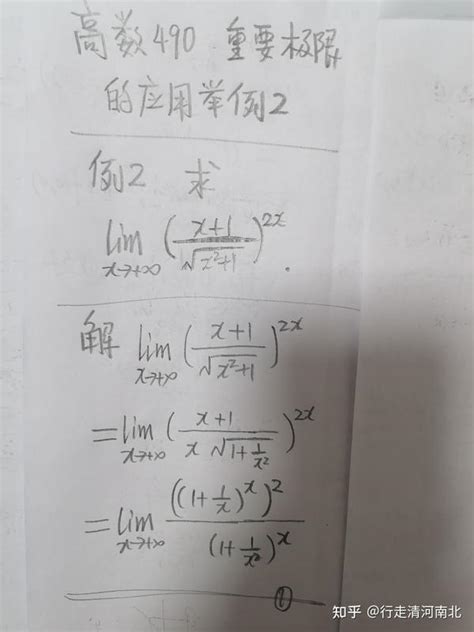 高数490 重要极限
的应用举例2
例2 求
lim x→+∞ (x+1/√x²+1)^2x.
解 lim x→+∞ (x+1/√x²+1)^2x
=lim x→+∞ (x+1/x√1+1/x²)^2x
=lim x→+∞ ((1+1/x)^x)^2/(1+1/x²)^x
①
知乎 @行走清河南北